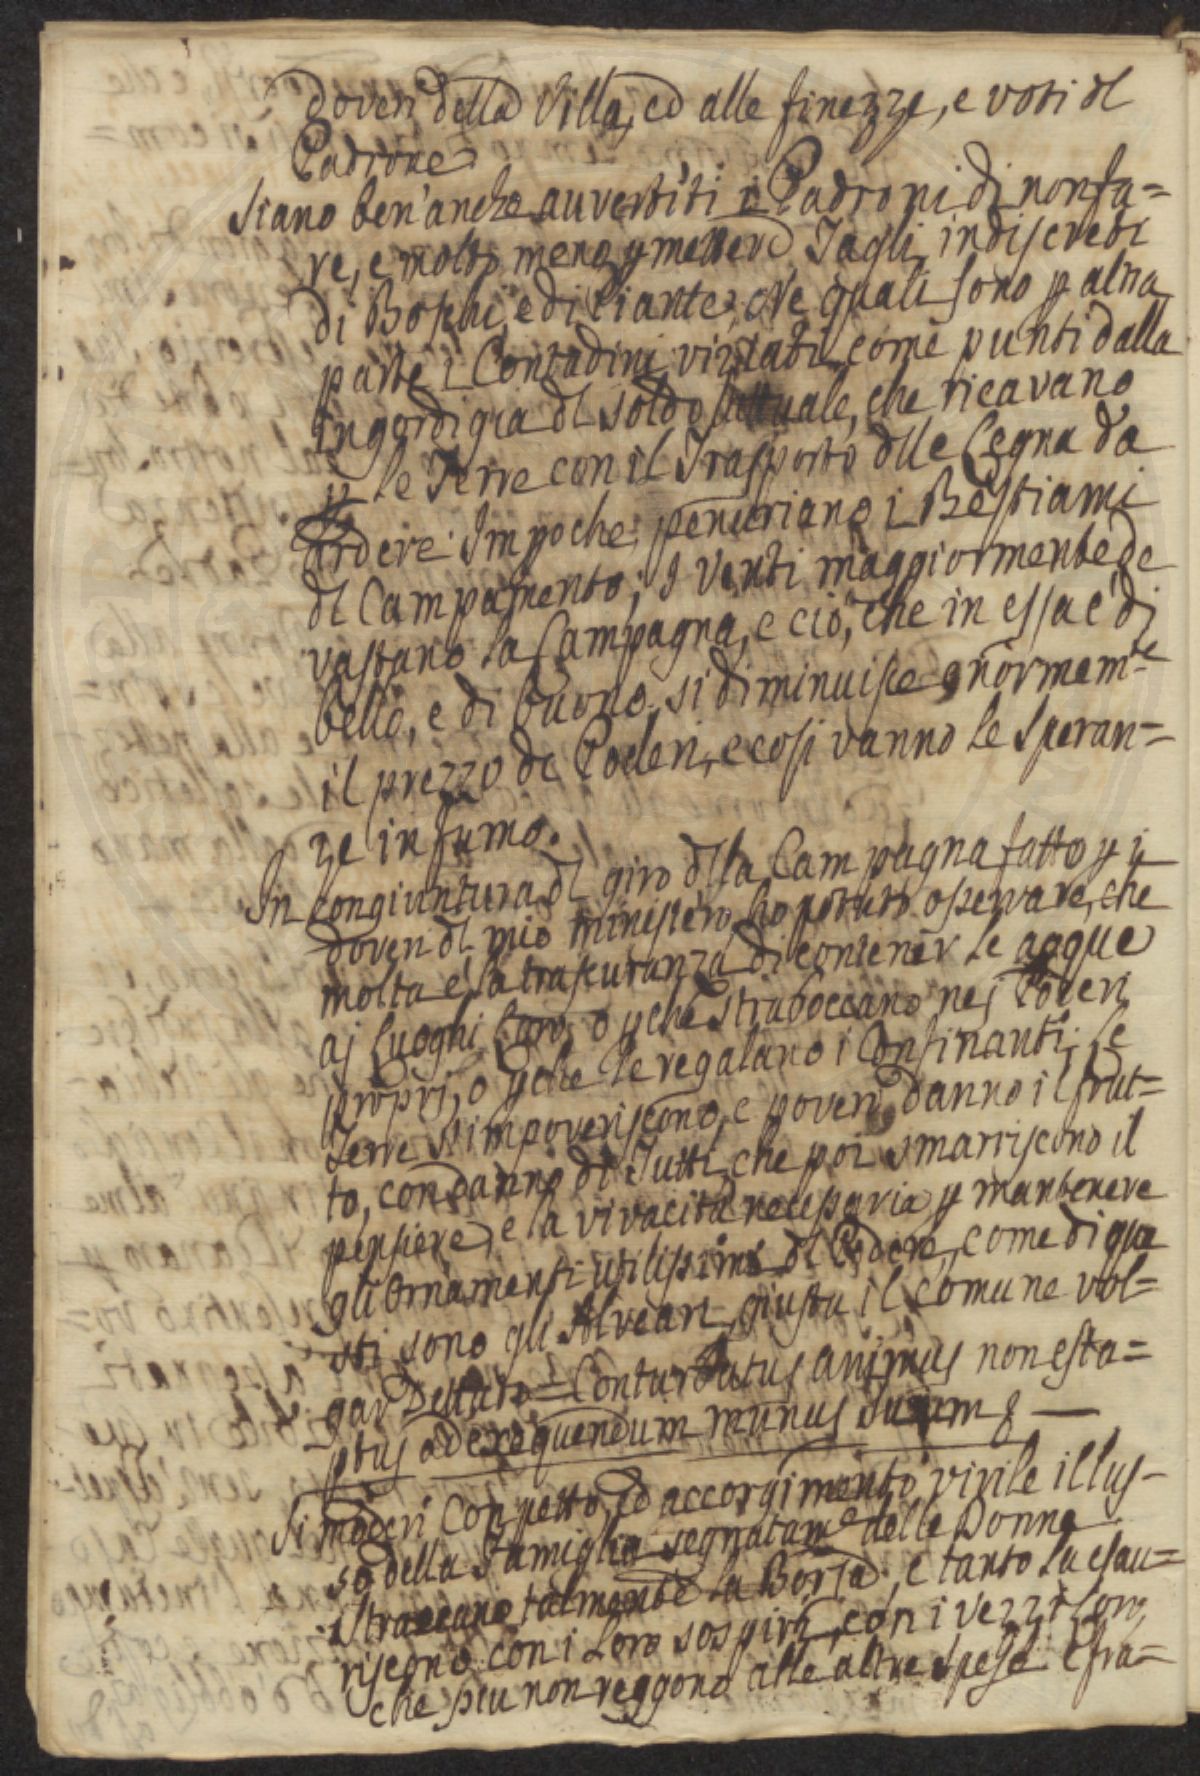 doveri della Villa, ed alle finezze, e voti dl
Padrone
Siano ben'anche avvertiti i Padroni di non fa=
re, e molto meno pmettere Tagli indiscreti
di Boschi, e di Piante, alle quali sono p altra
parte i Contadini vizziati, come punti dalla
Ingordigia dl soldo attuale, che ricavano
p le Terre con il Trasporto dlle Legna da
ardere: Impoche penuriano i Bestiami
dl Campamento; I venti maggiormente de
vastano la Campagna, e ciò, che in essa è di
bello, e di buono, si diminuisce enormem.te
il prezzo de Poderi, e cosi vanno le Speran=
ze in fumo.
In congiuntura dl giro dlla Campagna fatto p i
doveri dl mio ministero, ho potuto osservare, che
molta è la trascuranza di contener le acque
aj Luoghi Loro, o pche straboccano nej Poderi
proprj, o pche le regalano i Confinanti; Le
Terre s'impoveriscono, e poveri danno il frut=
to, con danno di Tutti, che poi smarriscono il
pensiere, e la vivacità necessaria p mantenere
gli Ornamenti utilissimi dl Podere, come di que
sti sono gli Alveari, giusta il comune vol=
gar Dettato = Conturbatus animus non est a=
ptus ad exequendum munus suum &
Si moderi con petto, ed accorgimento virile il lus-
so della Famiglia segnatam.e delle Donne
straccano talmente la Borsa, e tanto la esau=
riscono con i Loro sospiri, con i vezzi loro,
che piu non reggono alle altre spese. E fra=